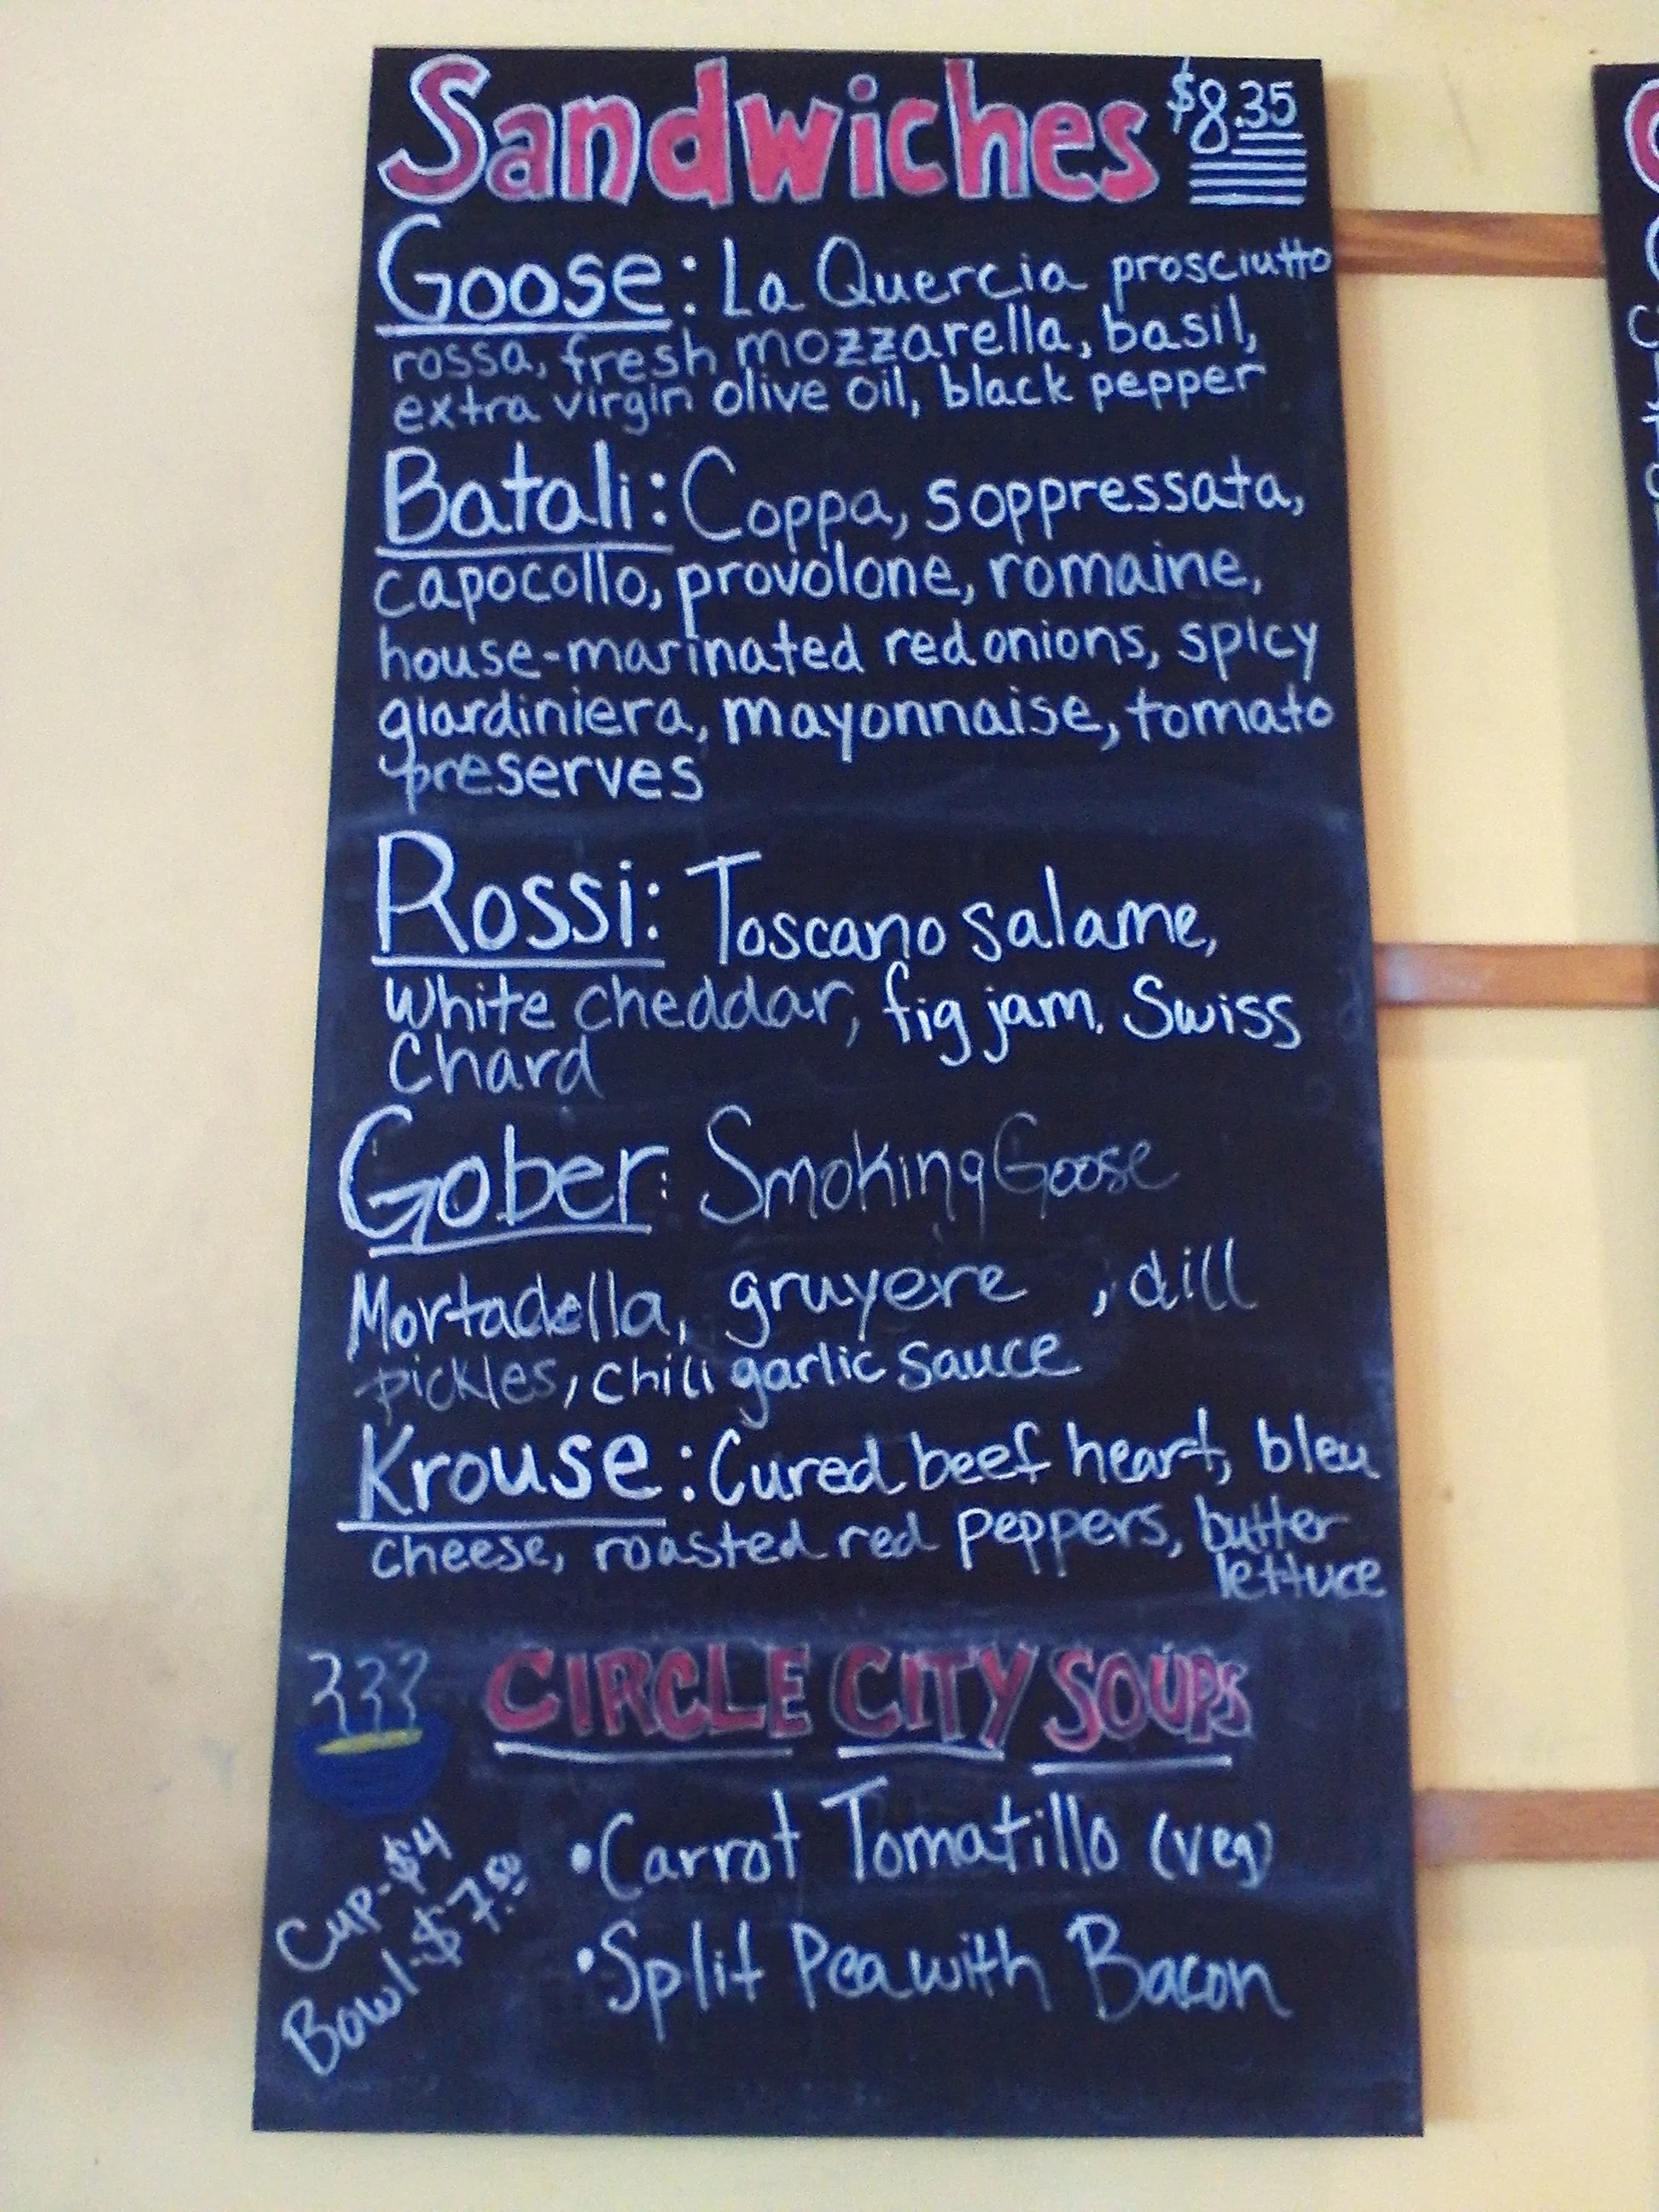 Sandwiches $8.35
Goose: La Quercia prosciutto
rossa, fresh mozzarella, basil,
extra virgin olive oil, black pepper
Batali: Coppa, soppressata,
capocollo, provolone, romaine,
house-marinated red onions, spicy
giardiniera, mayonnaise, tomato
preserves
Rossi: Toscano salame,
White cheddar, fig jam. Swiss
Chard
Gober: Smoking Goose
Mortadella, gruyere , dill
pickles, chili garlic sauce
Krouse: Cured beef heart, bleu
cheese, roasted red peppers, butter
lettuce
CIRCLE CITY SOUPS
Cup-$4
Bowl-$7.50
•Carrot Tomatillo (veg)
•Split Pea with Bacon